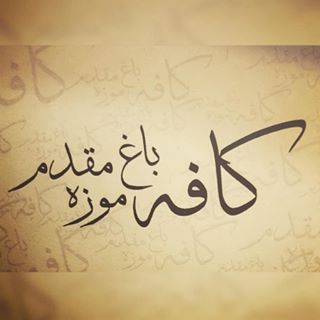 کافه موزه
باغ مقدم